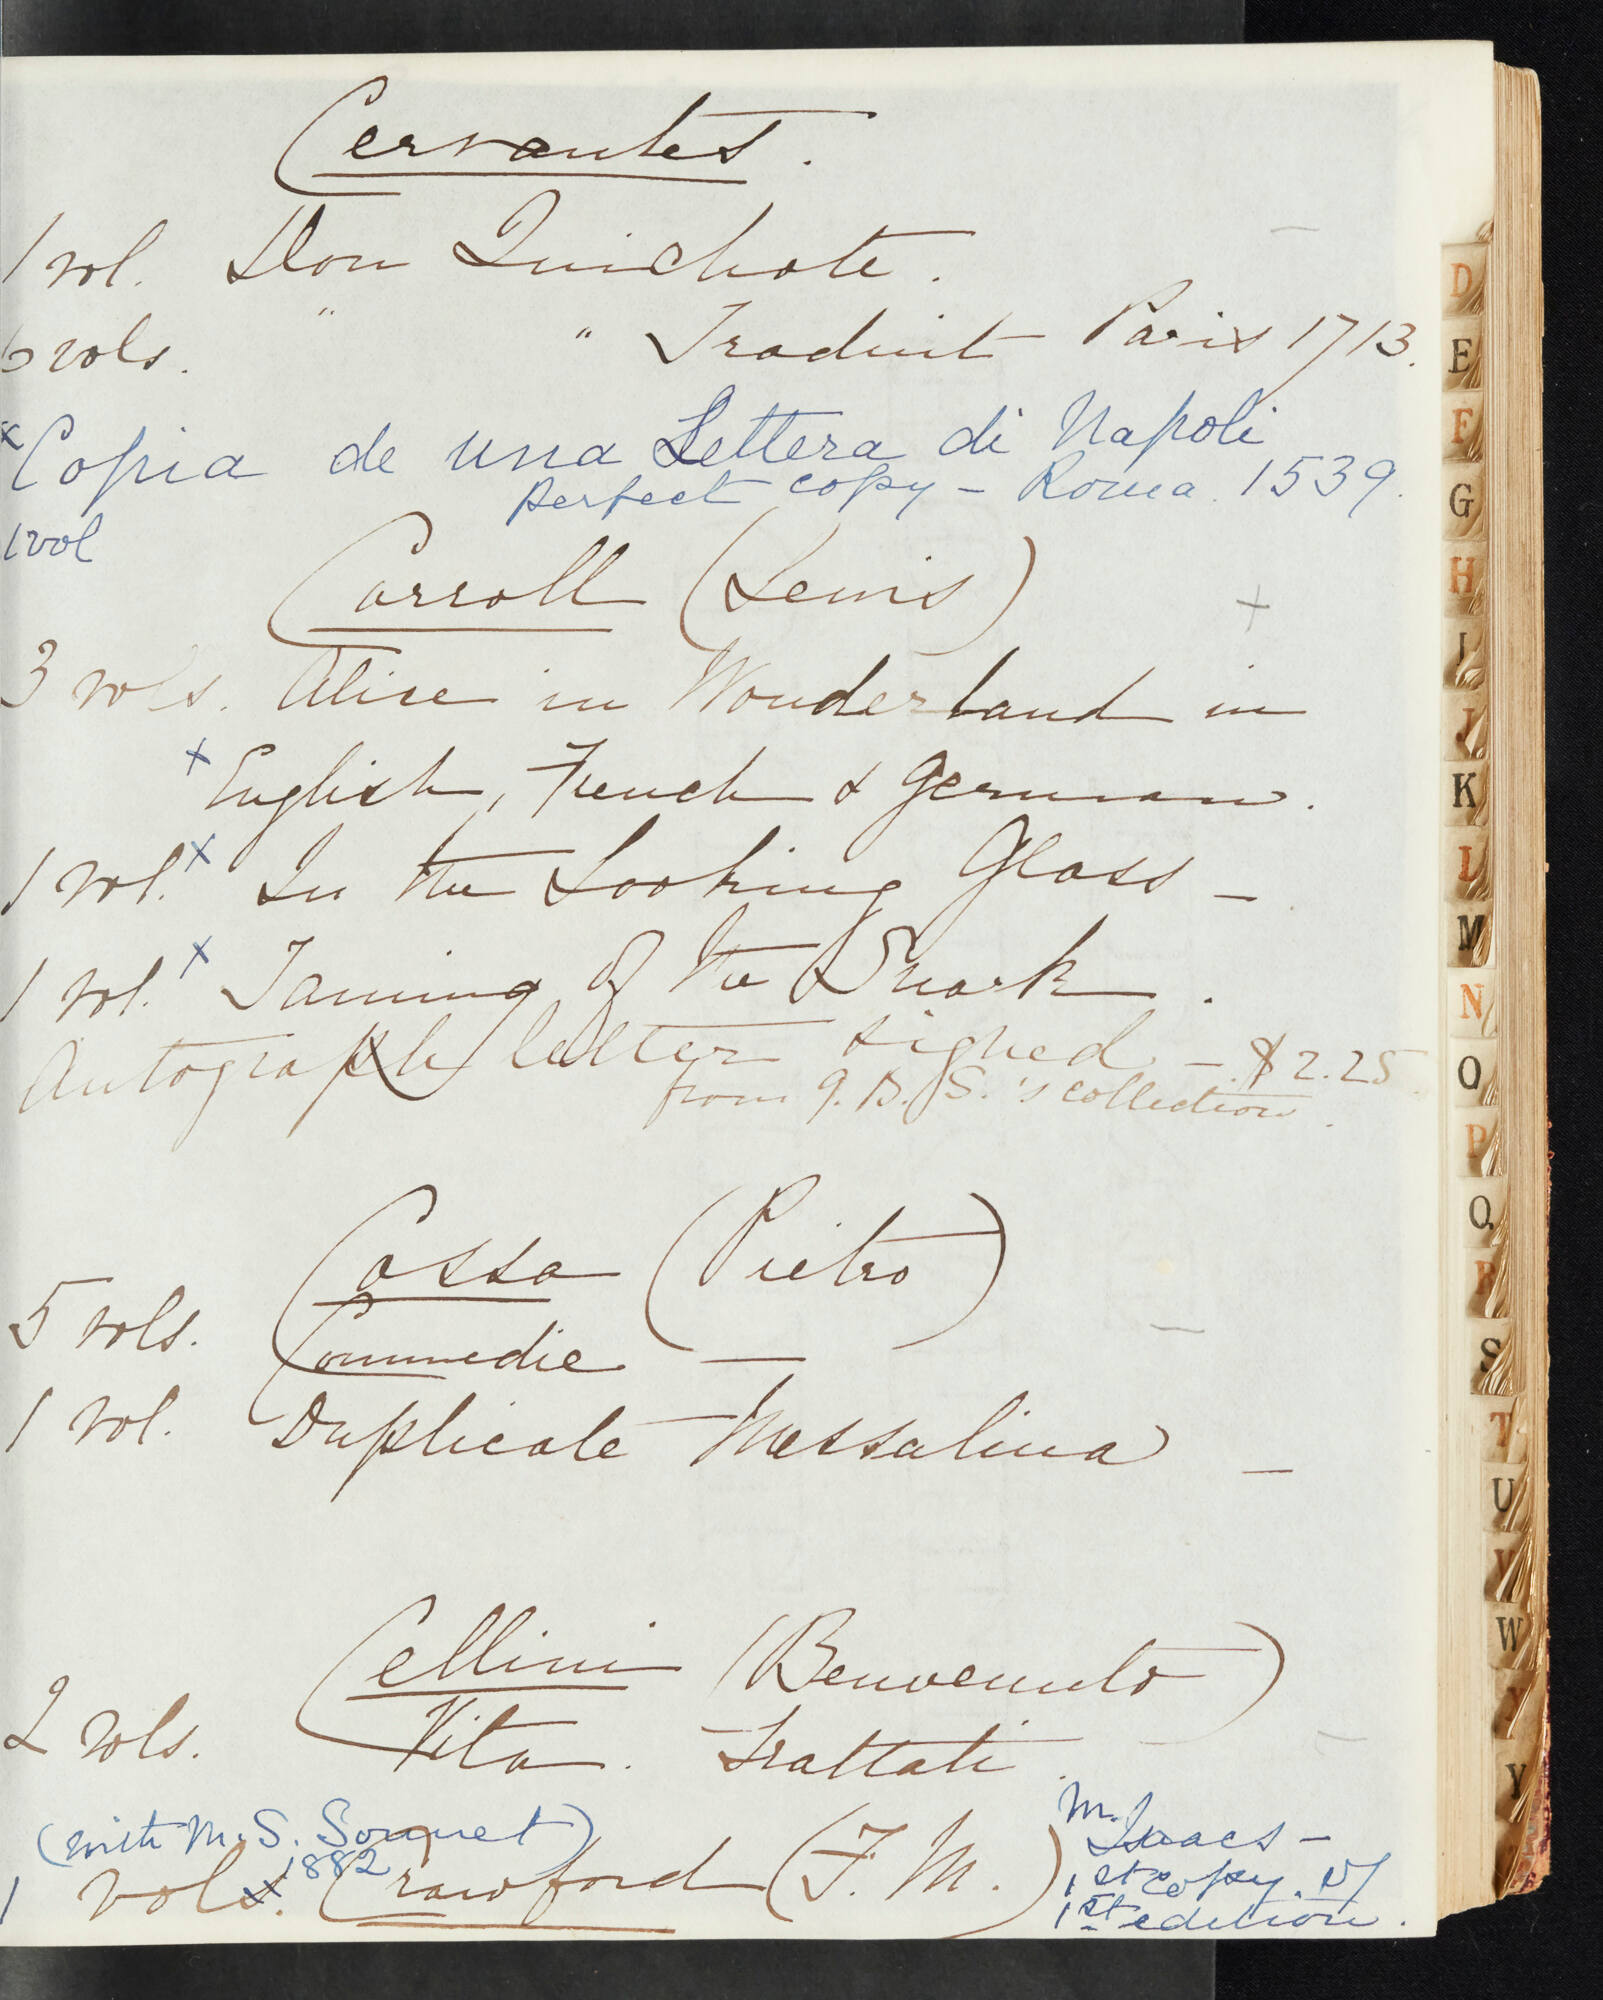 Cervantes.
1 vol. Don Quichote.
6 vols. " " Traduit Paris 1713.
x Copia de una Lettera di Napoli
perfect copy - Roma. 1539.
1 vol
Carroll (Lewis)
+
3 vols. Alice in Wonderland in
x English, French & German.
1 vol. x In the Looking Glass -
1 vol. x Taming of the Snark.
Autograph letter signed - $2.25
from I.B.S.'s collection
Cossa (Pietro)
5 vols. Commedie —
1 vol. Duplicate Messalina —
Cellini (Benvenuto)
2 vols. Vita. Trattati.
(with M.S. Sonnet) Mr. Isaacs -
1882
1 vols. x Crawford (F. M.) 1st copy of
1st edition.
D
E
F
G
H
I
J
K
L
M
N
O
P
Q
R
S
T
U
V
W
X
Y